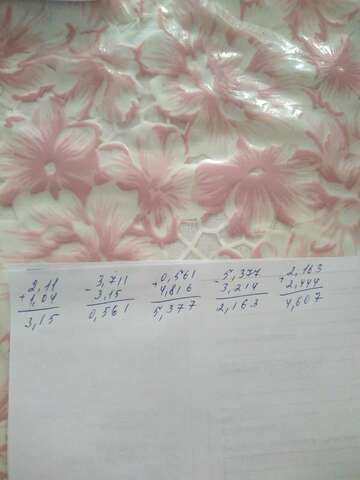 2,11 - 3,711 + 0,561 - 5,377 + 2,163
+ 1,04 3,15 4,816 3,214 2,444
3,15 0,561 5,377 2,163 4,607